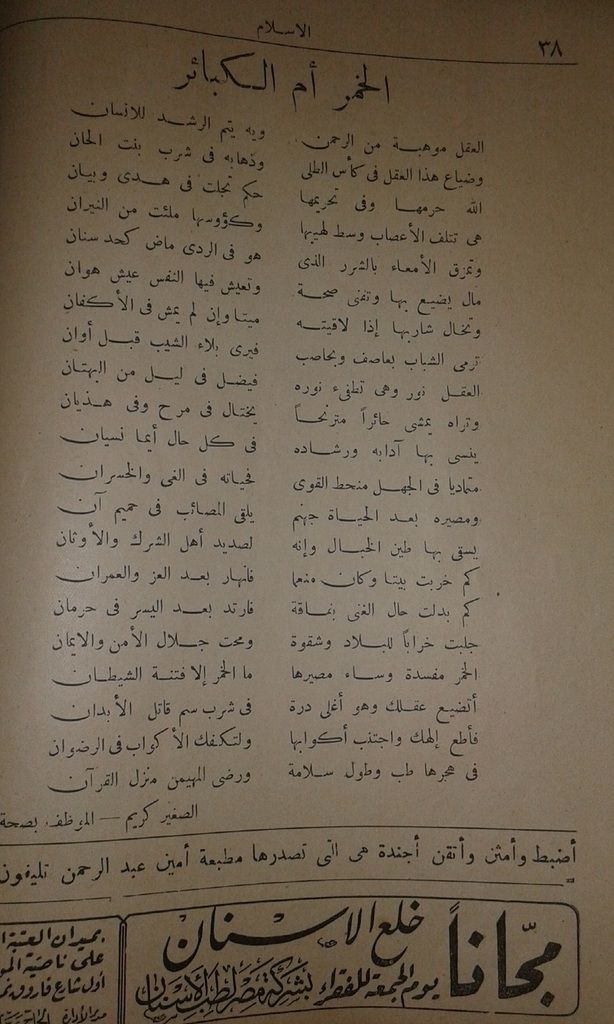 ٣٨
الاسلام
الخمر أم الكبائر
العقل موهبة من الرحمن وبه يتم الرشد للانسان
وضياع هذا العقل فى كأس الطلى وذهابه فى شرب بنت الحان
الله حرمها وفى تحريمها حكم تجلت فى هدى وبيان
هى تتلف الأعصاب وسط لهيبها وكؤوسها ملئت من النيران
وتمزق الأمعاء بالشرر الذى هو فى الردى ماض كحد سنان
مال يضيع بها وتفنى صحة وتعيش فيها النفس عيش هوان
وتخال شاربها إذا لاقيته ميتا وإن لم يمش فى الأكفان
ترمى الشباب بعاصف وبحاصب فيرى بلاء الشيب قبل أوان
العقل نور وهى تطفىء نوره فيضل فى ليل من البهتان
وتراه يمشى حائراً مترنحاً يختال فى مرح وفى هذيان
ينسى بها آدابه ورشاده فى كل حال أيما نسيان
متماديا فى الجهل منحط القوى فحياته فى الغى والخسران
ومصيره بعد الحياة جهنم يلقى المصائب فى حميم آن
يسقى بها طين الخبال وإنه لصديد أهل الشرك والأوثان
كم خربت بيتا وكان منعما فانهار بعد العز والعمران
كم بدلت حال الغنى بفاقة فارتد بعد اليسر فى حرمان
جلبت خراباً للبلاد وشقوة ومحت جلال الأمن والايمان
الخمر مفسدة وساء مصيرها ما الخمر إلا فتنة الشيطان
أتضيع عقلك وهو أغلى درة فى شرب سم قاتل الأبدان
فأطع إلهك واجتنب أكوابها ولتكفك الأكواب فى الرضوان
فى هجرها طب وطول سلامة ورضى المهيمن منزل القرآن
الصغير كريم — الموظف بصحة
أضبط وأمتن وأتقن أجندة هى التى تصدرها مطبعة أمين عبد الرحمن تليفون
مجّاناً
خلع الاسنان
يوم الجمعة للفقراء بشركة مصر لطب الأسنان
بميدان العتبة
على ناصية
أول شارع فاروق